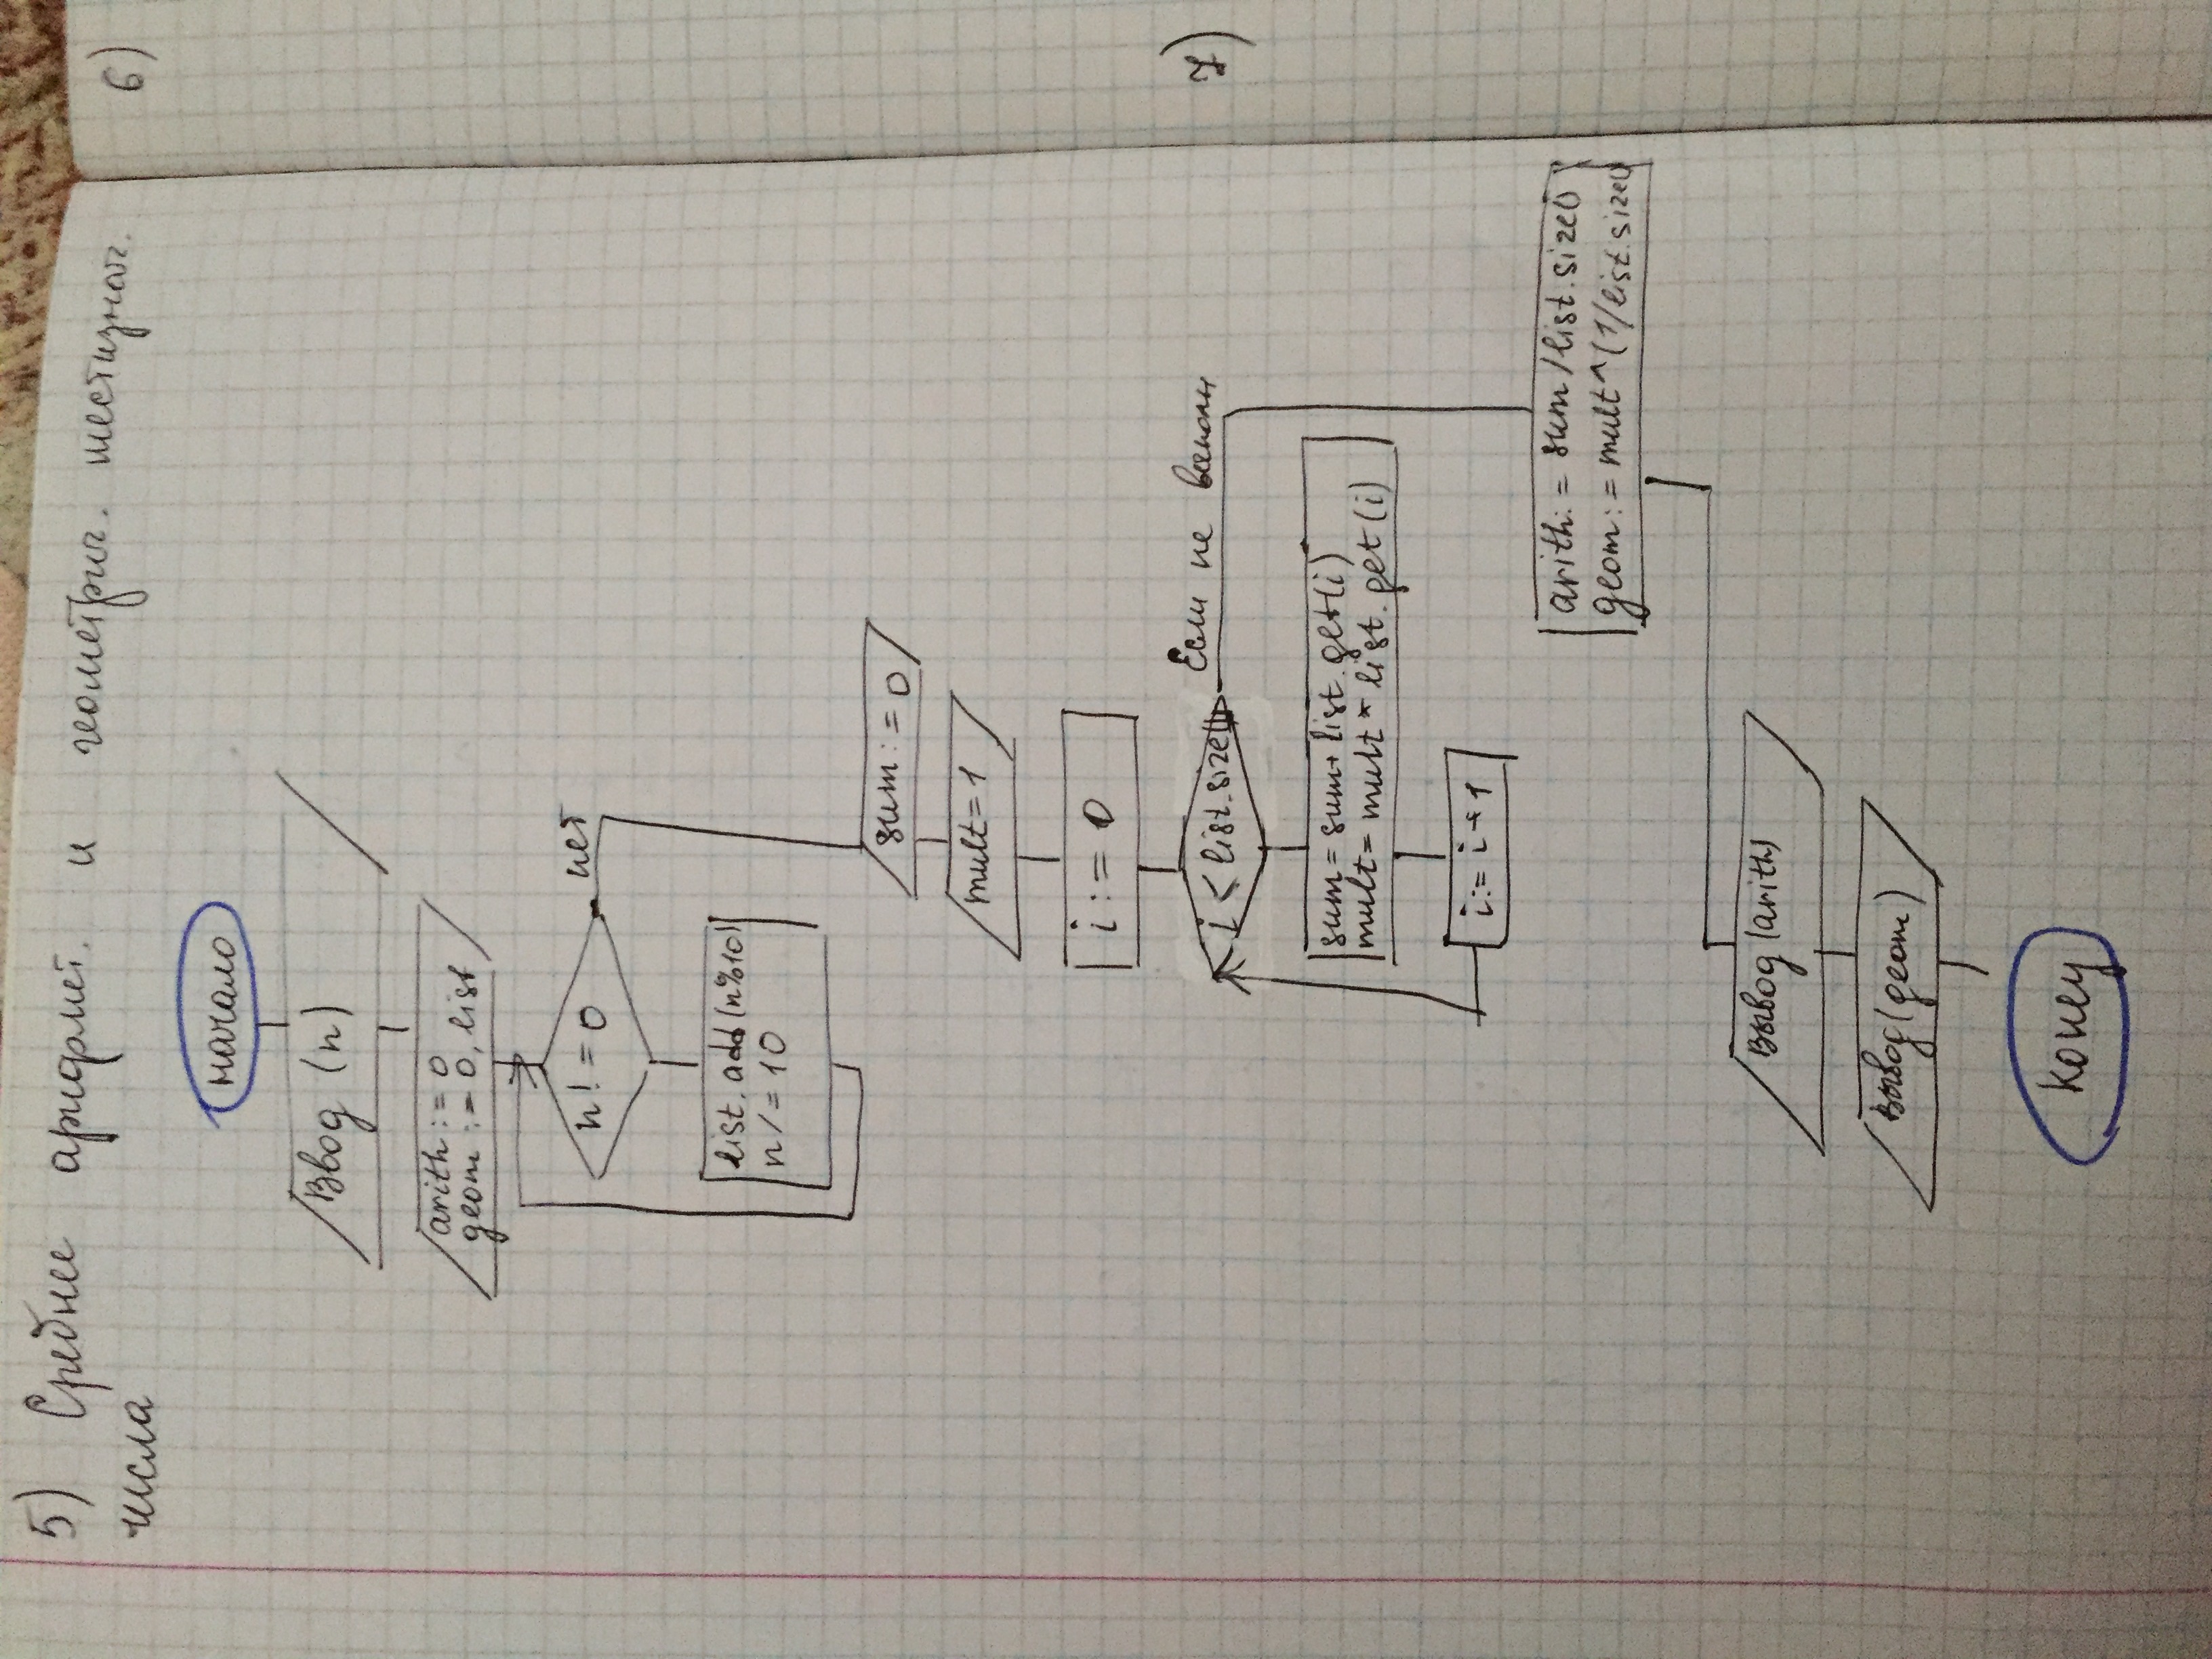 5) Среднее арифмет. и геометрич. шестизнач.
числа
6)
начало
Ввод (n)
arith := 0
geom := 0, list
n! = 0
нет
list.add(n%10)
n/=10
sum := 0
mult=1
i := 0
i < list.size()
Если не выполн
7)
sum = sum+ list.get(i)
mult= mult * list.get(i)
i:= i+1
arith: = sum/list.size()
geom: = mult^(1/list.size()
Вывод(arith)
Вывод(geom)
конец